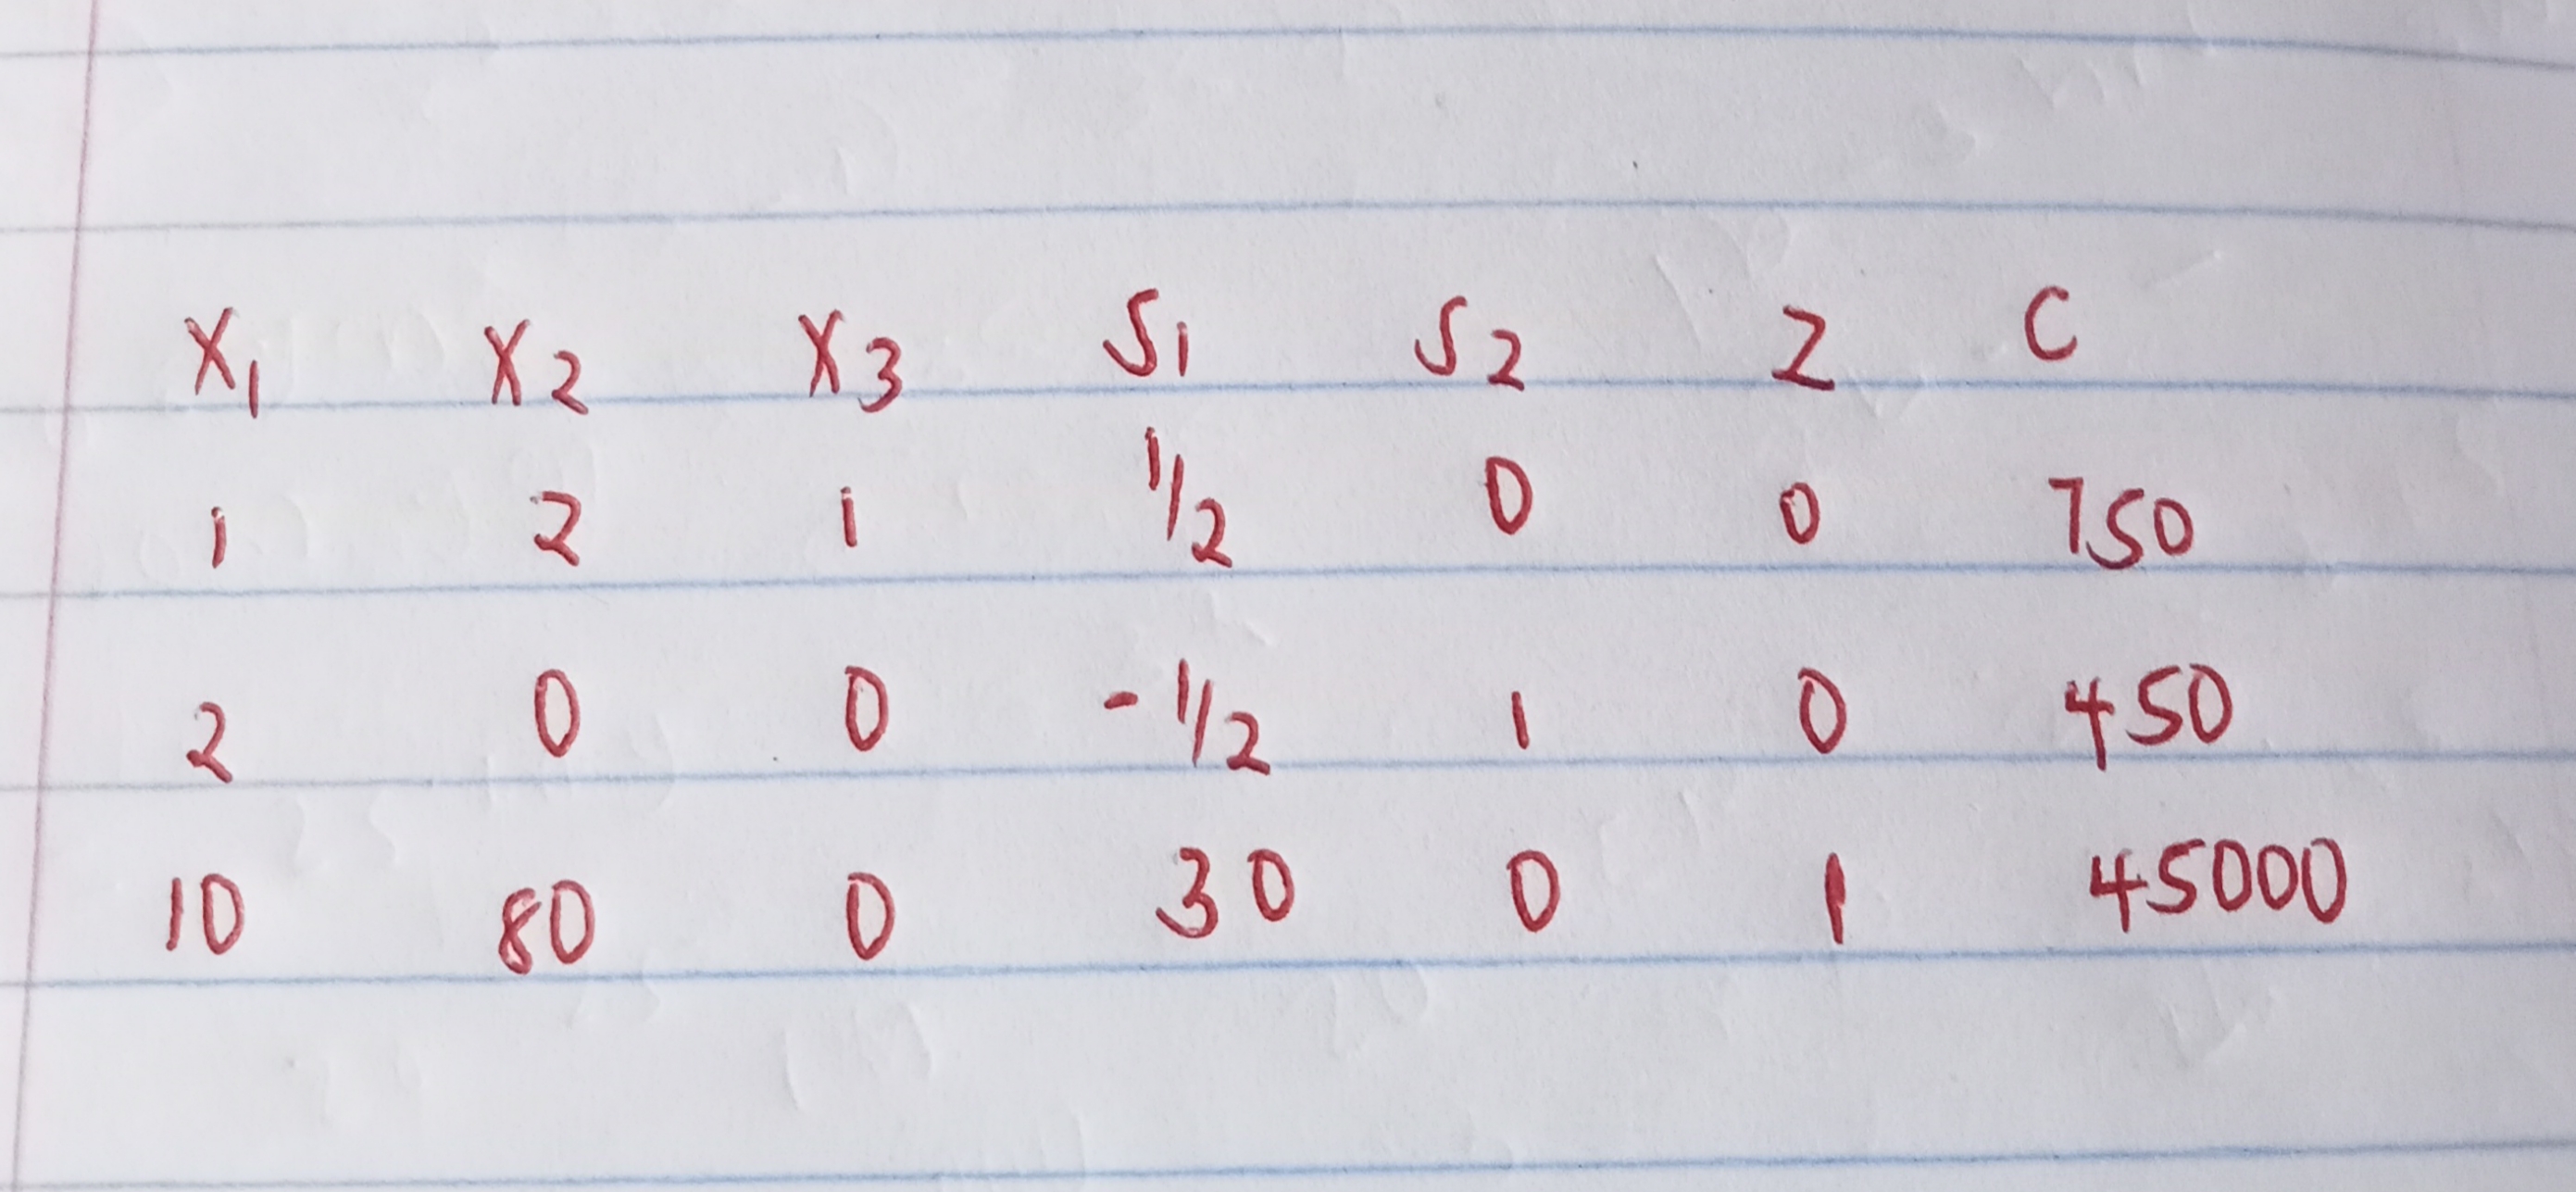 X1 X2 X3 S1 S2 Z C
1 2 1 1/2 0 0 750
2 0 0 -1/2 1 0 450
10 80 0 30 0 1 45000